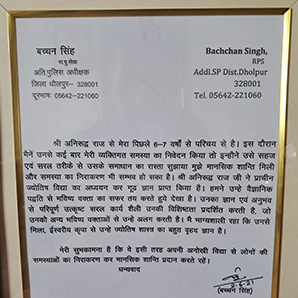 बच्चन सिंह
रा.पु.सेवा
अति.पुलिस अधीक्षक
जिला धौलपुर –
328001
दूरभाष: 05642-221060
Bachchan Singh,
RPS
Addl.SP Dist.Dholpur
328001
Tel. 05642-221060
श्री अनिरूद्ध राज से मेरा पिछले 6–7 वर्षो से परिचय से है। इस दौरान
मैनें उनसे कई बार मेरी व्यक्तिगत समस्या का निवेदन किया तो इन्होने उसे सहज
एवं सरल तरीके से उसके समाधान का रास्ता सुझाया मुझे मानसिक शान्ति मिली
और समस्या का निराकरण भी सम्भव हो सका है। श्री अनिरूद्ध राज जी ने प्राचीन
ज्योतिष विद्या का अध्ययन कर गूढ ज्ञान प्राप्त किया है। हमने उन्हे वैज्ञानिक
पद्धति से भविष्य वक्ता का सफर तय करते हुये देखा है। उनका ज्ञान एवं अनुभव
से परिपूर्ण उत्कृष्ट सरल कार्य शैली उनकी विशिष्टता प्रदर्शित करती है, जो
उनको अन्य भविष्य वक्ताओं से उन्हे अलग करती है। मै भाग्यशाली रहा कि उनसे
मिला, ईश्वरीय कृपा से उन्हे ज्योतिष शास्त्र का बहुत वृहद ज्ञान है।
मेरी सुभकामना है कि वे इसी तरह अपनी अनोखी विद्या से लोगों की
समस्याओं का निराकरण कर मानसिक शान्ति प्रदान करते रहें।
धन्यवाद
2.6.21
(बच्चन सिंह)